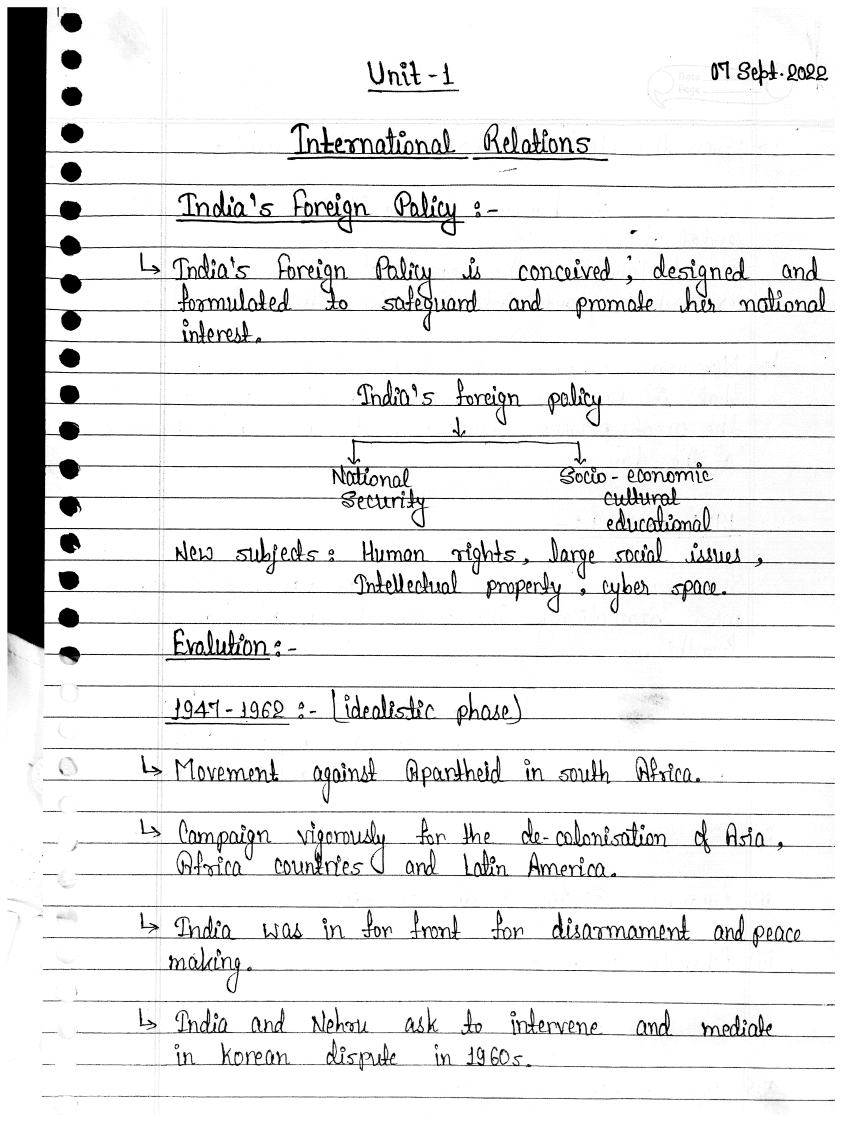 Unit - 1
07 Sept. 2022
International Relations
India's Foreign Policy :-
↳ India's Foreign Policy is conceived, designed and
formulated to safeguard and promote her national
interest.
India's foreign policy
National
Security
Socio - economic
cultural
educational
New subjects : Human rights, large social issues,
Intellectual property, cyber space.
Evalution :-
1947 - 1962 :- (idealistic phase)
↳ Movement against Apartheid in south Africa.
↳ Campaign vigorously for the de-colonisation of Asia,
Africa countries and Latin America.
↳ India was in for front for disarmament and peace
making.
↳ India and Nehru ask to intervene and mediate
in Korean dispute in 1960s.